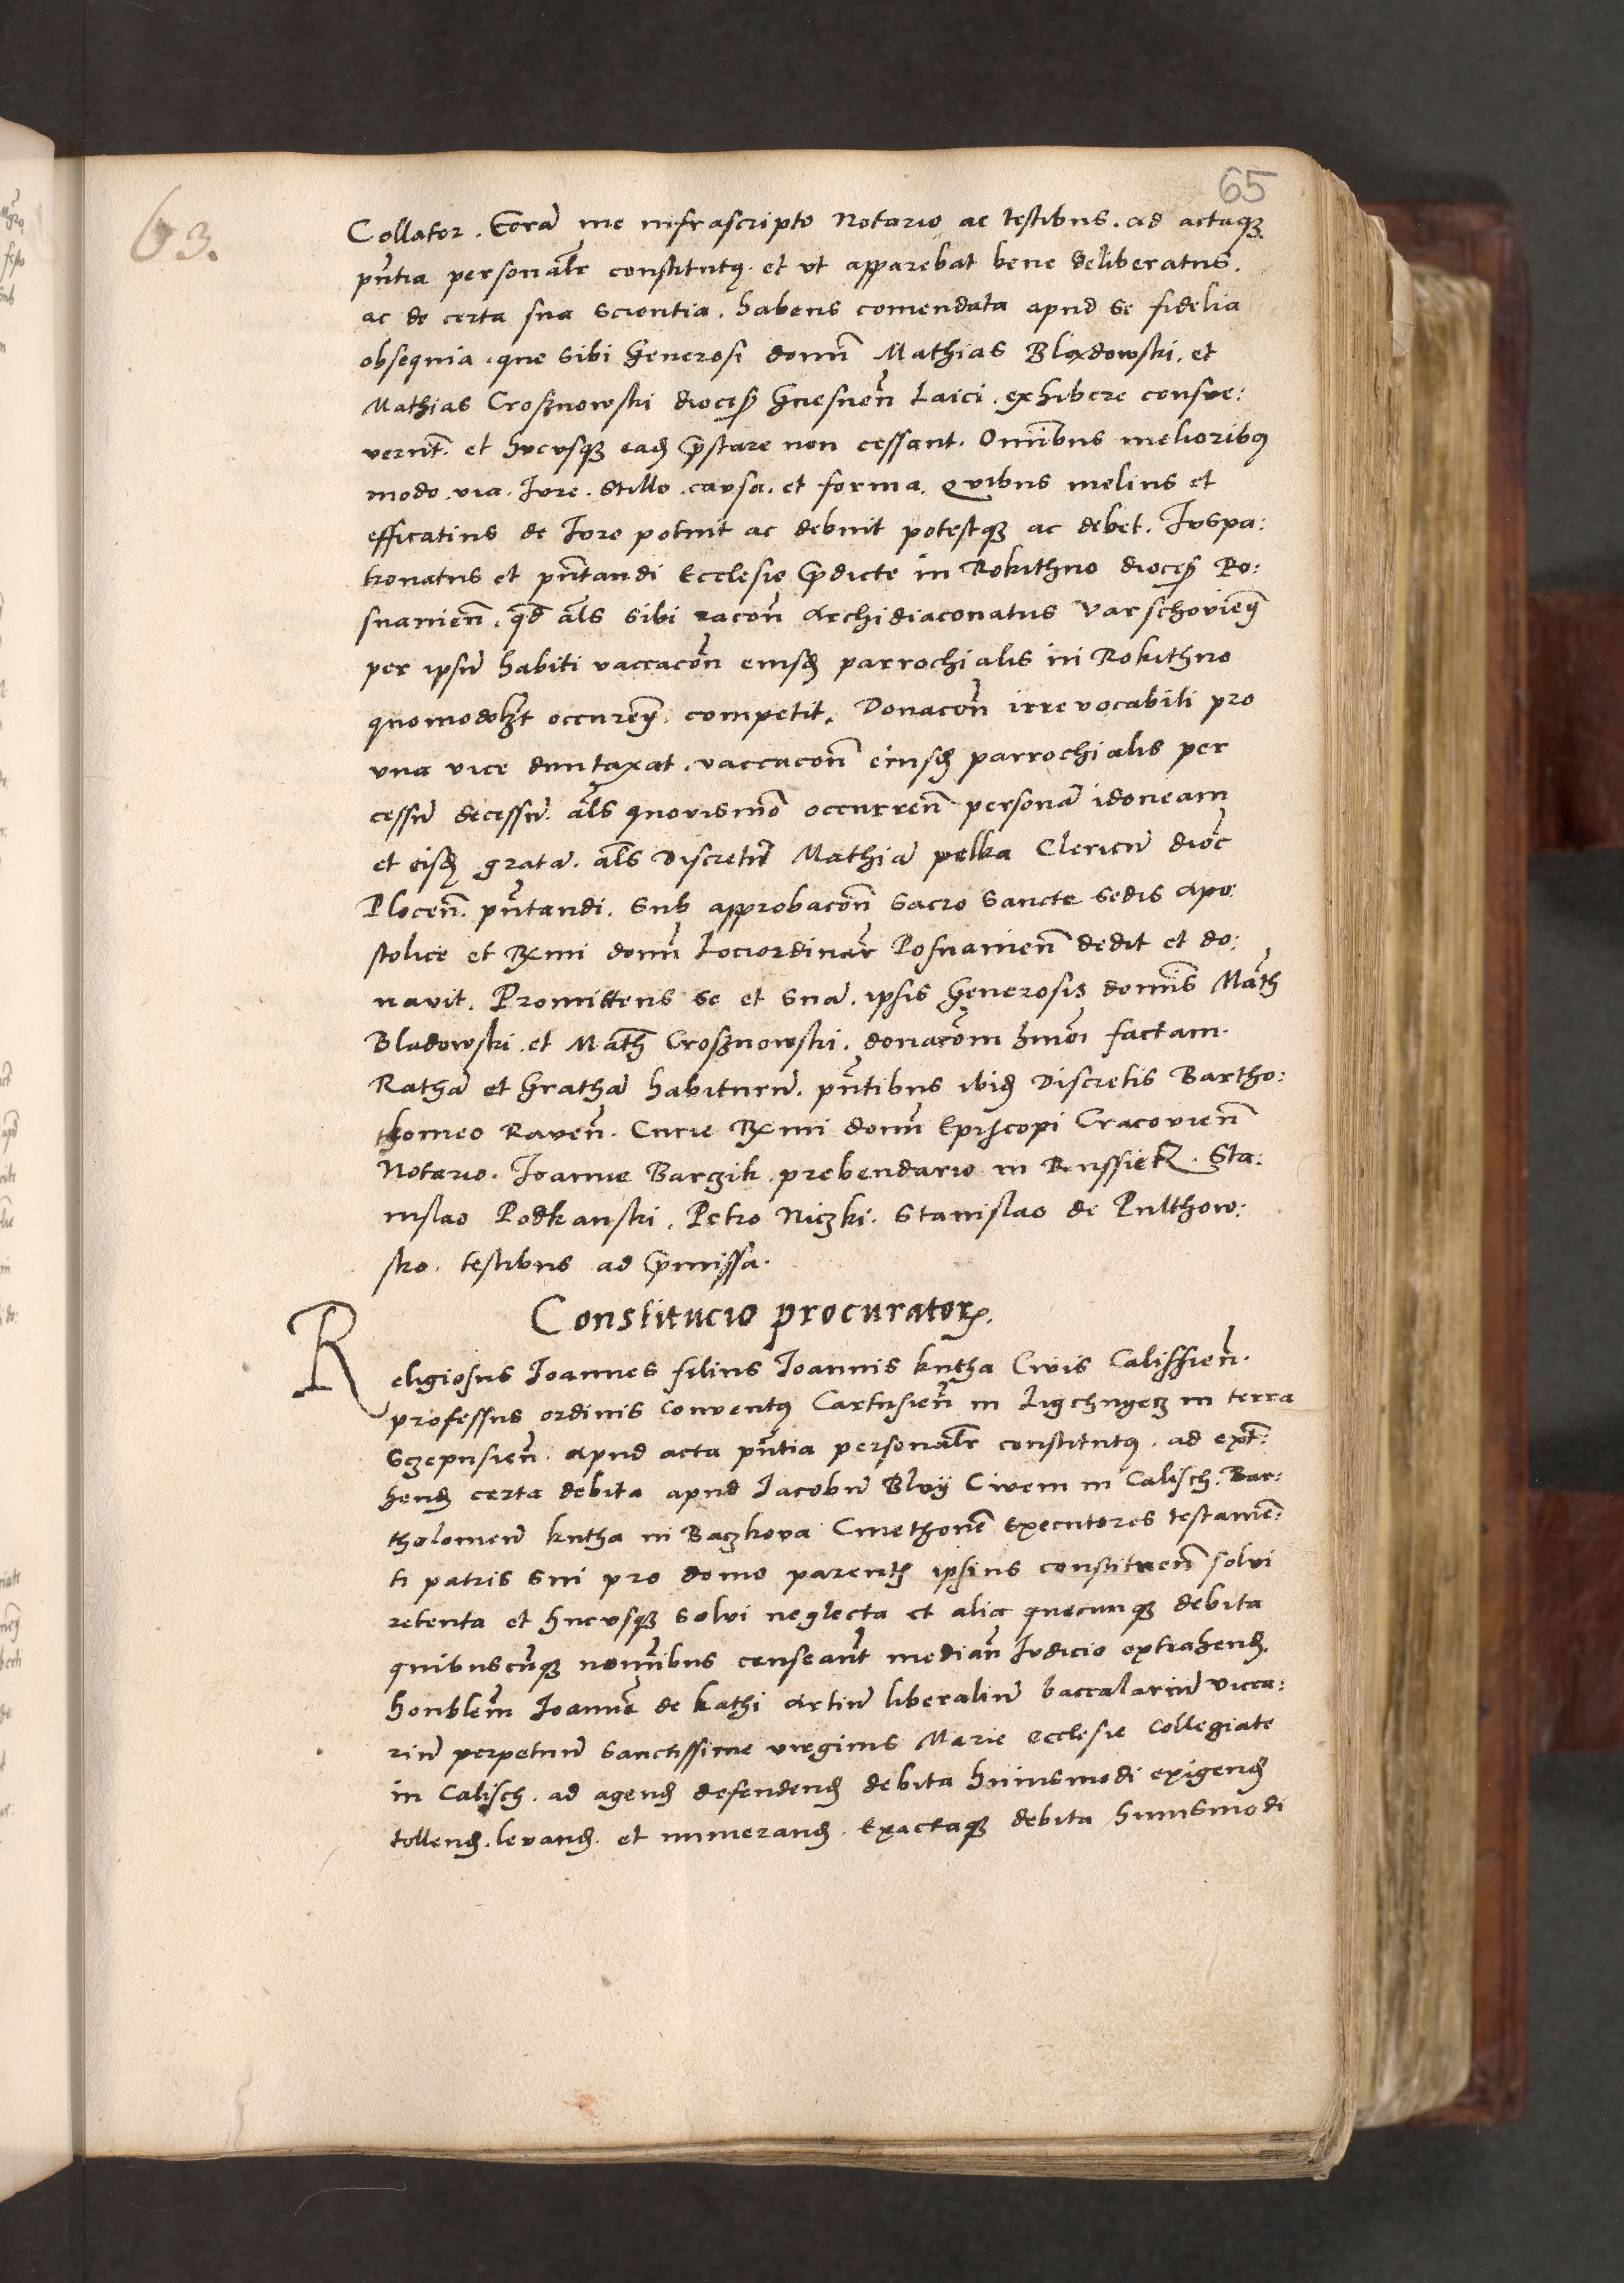 65
63.
Collator. Corā me infrascripto Notario ac testibus. ad actaq₃
pñtia personalr̄ constitutꝰ. et vt apparebat bene deliberatus.
ac de certa sua scientia. habens comendata apud se fidelia
obsequia. que sibi Generosi domī Mathias Bladowski. et
Mathias Crosznowski diocẹꝫ Gnesneñ Laici. exhibere consue:
verūt. et hucusq₃ eadꝫ p̄stare non cessant. Omībus melioribꝰ
modo. via. Jure. stillo. causa. et forma. Quibus melius et
efficatius de Jure potuit ac debuit potestq₃ ac debet. Juspa:
tronatus et pñtandi Ecclesie p̄dicte in Rokithno dioceꝫ Po:
snanień. qd̄ als̄ sibi racoñ Archidiaconatus Varschovieñ
per ipsū habiti vaccacoñ eiusdꝫ parrochialis in Rokithno
quomodolꝫt occureñ. competit. Donacoñ irrevocabili pro
vna vice duntaxat. vaccacoñ eiusdꝫ parrochialis per
cessū decessū. als̄ quovismō occurreñ personā idoneam
et eisdꝫ gratā. als̄ Discretū Mathiā pelka Clericū dioc̄
Ploceñ. pñtandi. sub approbacoñ sacro sancte sedis apo:
stolice et Rx̄mi domī Lociordinar̄ Posnanień dedit et do:
navit. Promittens se et suā. ipsis Generosis domīs Math̄
Bladowski. et Math̄ Crosznowski. donacōm hmōi factam.
Rathā et Grathā habiturū. pñtibus ibidꝫ Discretis Bartho:
lomeo Raveñ. Curie Rx̄mi domī Episcopi Cracovień
Notario. Joanne Barczik prebendario in Russietz. Sta:
nislao Podkanski. Petro Niczki. Stanislao de Pulthow:
sko. testibus ad p̄missa.
Constitucio procuratorꝫ.
Religiosus Joannes filius Joannis kutha Civis Calissień.
professus ordinis Conventꝰ Cartusień in Ligchnyecz in terra
Sczepusień. apud acta pñtia personalr̄ constitutꝰ. ad ext̄:
hendꝫ certa debita apud Jacobū Blvij Civem in Calisch. Bar:
tholomeū kutha in Baczkova Cmethonē Executores testamē:
ti patris sui pro domo parentꝫ ipsius constitueñ solvi
retenta et hucusq₃ solvi neglecta et alia quecunq₃ debita
quibuscūq₃ nomībus censeant̄ mediañ Judicio extrahendꝫ.
honblēm Joannē de kathi Artiū liberaliū baccalariū vicca:
riū perpetuū Sanctissime virginis Marie Ecclesie Collegiate
in Calisch. ad agendꝫ defendendꝫ debita huiusmodi exigendꝫ
tollendꝫ. levandꝫ. et numerandꝫ. Exactaq₃ debita huiusmodi